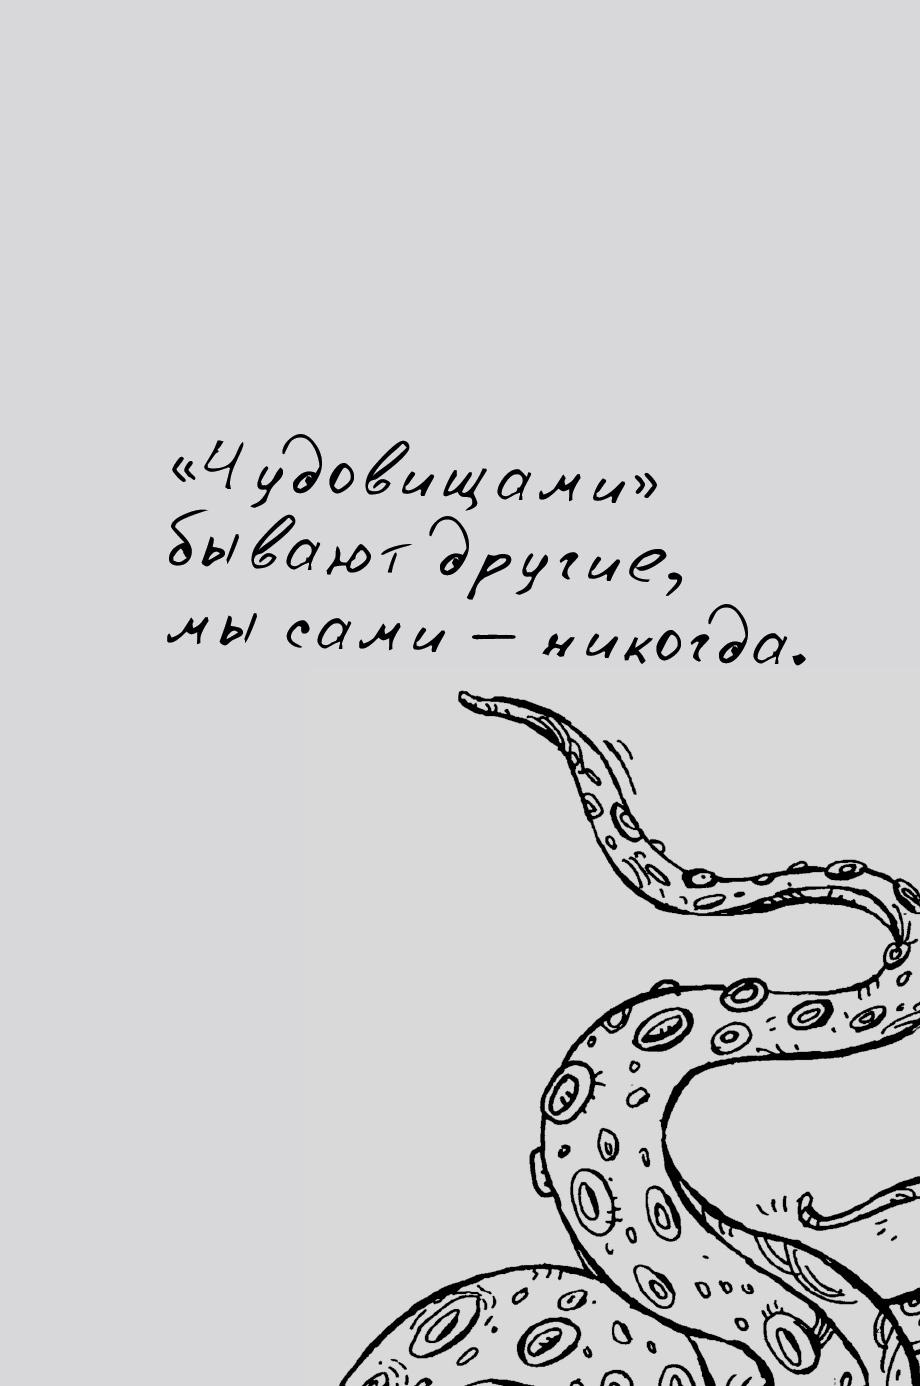 «Чудовищами»
бывают другие,
мы сами – никогда.